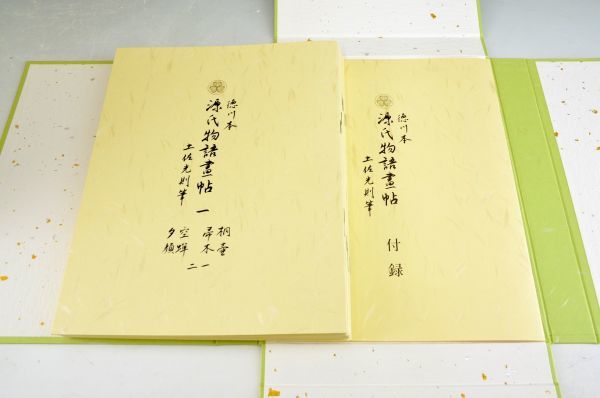 徳川本
源氏物語畫帖 一
土佐光則筆
桐壺
帚木 一 二
空蝉
夕顔
徳川本
源氏物語畫帖
土佐光則筆
付録